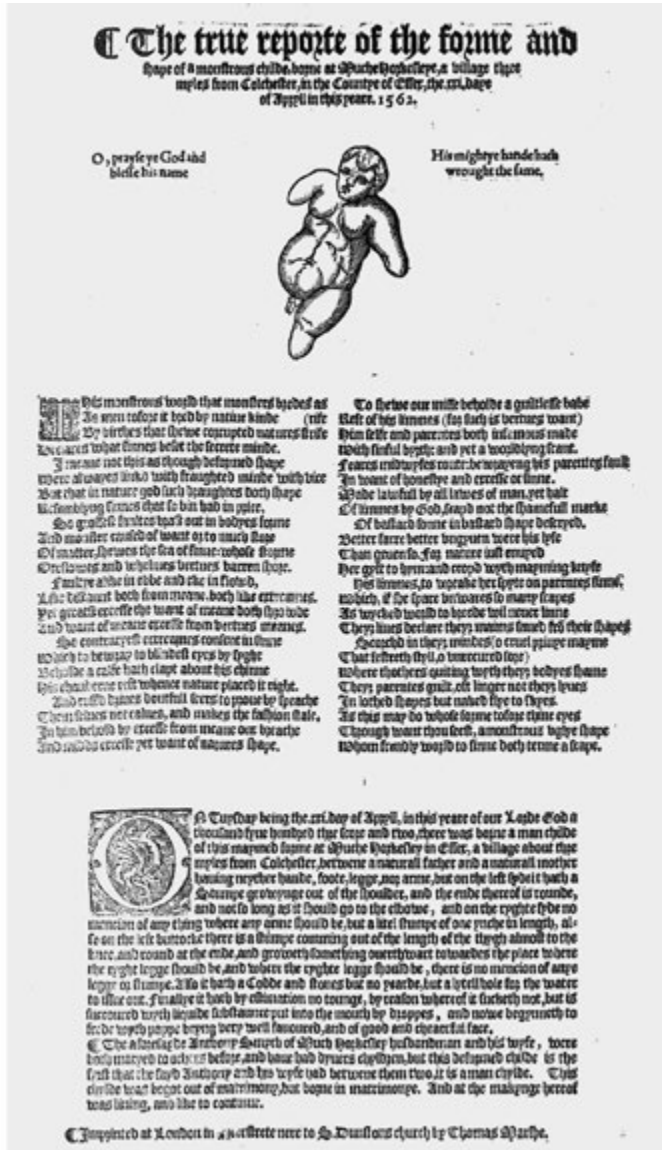 The true reporte of the forme and
shape of a monstrous childe, borne at Muche Horkesleye, a village three
myles from Colchester, in the Countye of Essex, the .xxi. daye
of Apryll in this yeare. 1562.
O, prayse ye God and
blesse his name
His mightye hande hath
wrought the same.
This monstrous world that monsters bredes as
As men tofore it bred by nature kinde (rife
By birthes that shewe corrupted natures strife
Declares what sinnes beset the secrete minde.
I meane not this as though deformed shape
Were alwayes linkd with fraughted minde with vice
But that in nature god such draughtes doth shape
Resemblyng sinnes that so bin had in price.
So grossest faultes brast out in bodyes forme
And monster caused of want or to much store
Of matter, shewes the sea of sinne: whose storme
Oreflowes and whelmes vertues barren shore.
Faultye alike in ebbe and eke in flowd,
Like distaunt both from meane, both like extreames.
Yet greatst excesse the want of meane doth shrowde
And want of meane excesse from vertues meanes.
So contrayest extreames consent in sinne
Which to bewray to blindest eyes by syght
Beholde a calfe hath clapt about his chinne
His chauldrene reft whence nature placed it right.
And ruffd
doutfull seers to proue by speache
Them selues not calues, and makes the fashion stale,
In him behold by excesse from meane our breache
And midds excesse yet want of natures shape.
To shewe our misse beholde a guiltlesse babe
Reft of his limmes (for such is vertues want)
Him selfe and parentes both infamous made
With sinfull byrth: and yet a worldlyng scant.
Feares mydwyfes route: bewrayeng his parentes fault
In want of honestye and excesse of sinne.
Made lawfull by all lawes of man, yet halt
Of limmes by God, scapd not the shamefull marke
Of bastard sonne in bastard shape descryed.
Better farre better vngyuen were his lyfe
Than gyuen so. For nature iust enuyed
Her gyft to hym: and cropd wyth mayming knyfe
His limmes, to wreake her spyte on parentes sinne,
Which, if she spare vnwares so many scapes
As wycked world to breede wil neuer linne
They liues declare theyr maims saued frō their shapes
Scorchd in theyr mindes (o cruel priuye mayme
That festreth styll, o vnrecured sore)
Where thothers quiting wyth theyr bodyes shame
Theyr parentes guilt, oft linger not theyr lyues
In lothed shapes but naked flye to skyes.
As this may do whose forme tofore thine eyes
Through want thou seest, a monstrous vglye shape
Whom frendly world to sinne doth terme a scape.
ON Tuysday being the .xxi. day of Apryll, in this yeare of our Lorde God a
thousand fyue hundred thre score and two, there was borne a man childe
of this maymed forme at Muche Horkesley in Essex, a village about thre
myles from Colchester, betwene a naturall father and a naturall mother
hauing neyther hande, foote, legge, nor arme, but on the left syde it hath a
Stumpe growynge out of the shoulder, and the ende therof is rounde,
and not so long as it should go to the elbowe, and on the ryghte syde no
mencion of any thing where any arme should be, but a litel stumpe of one ynche in length, al-
so on the left buttocke there is a stumpe comming out of the length of the thygh almost to the
knee, and round at the ende, and groweth something ouerthwart towardes the place where
the ryght legge should be, and where the ryghte legge should be, there is no mencion of anye
legge or stumpe. Also it hath a Codde and stones but no yearde, but a lytell hole for the water
to issue out. Finallye it hath by estimation no tounge, by reason wherof it sucketh not, but is
succoured wyth liquide substaunce put into the mouth by droppes, and nowe begynneth to
feede wyth pappe beyng very well fauoured, and of good and cheareful face.
The aforesayde Anthony Smyth of Much Horkesley husbandman and his wyfe, were
both maryed to others before, and haue had dyuers chyldren, but this deformed childe is the
fyrst that the sayd Anthony and his wyfe had betwene them two, it is a man chylde. This
chylde was begot out of matrimony, but borne in matrimonye. And at the makynge hereof
was liuing, and like to continue.
Imprynted at London in Fletestrete nere to S. Dunstons church by Thomas Marshe.